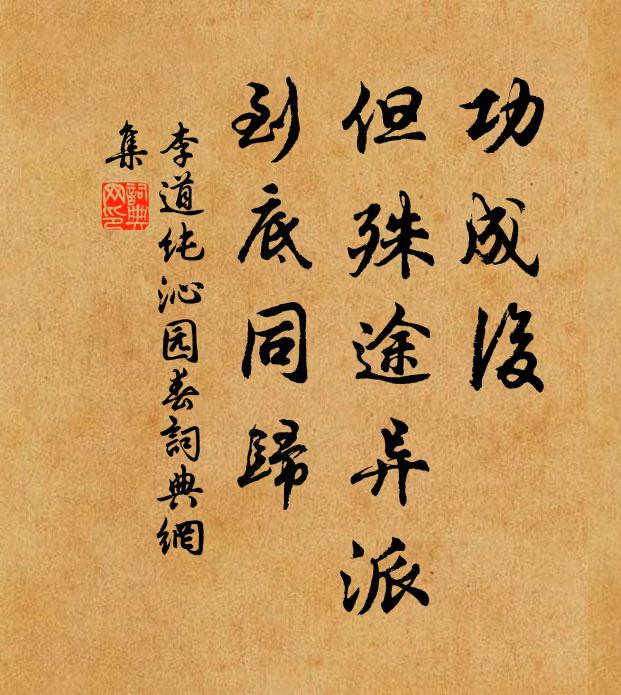 功成後
但殊途异派
到底同歸
李道纯沁园春詞典網
集
詞典网印